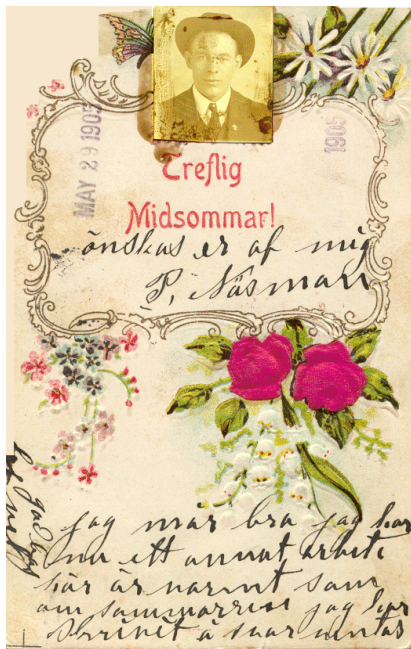 MAY 29 1905
1905
Treflig
Midsommar!
önskas er af mig
P. Näsman
jag mår bra jag har
nu ett annat arbete
här är varmt som
om sommarren jag har
skrivit å svar väntas